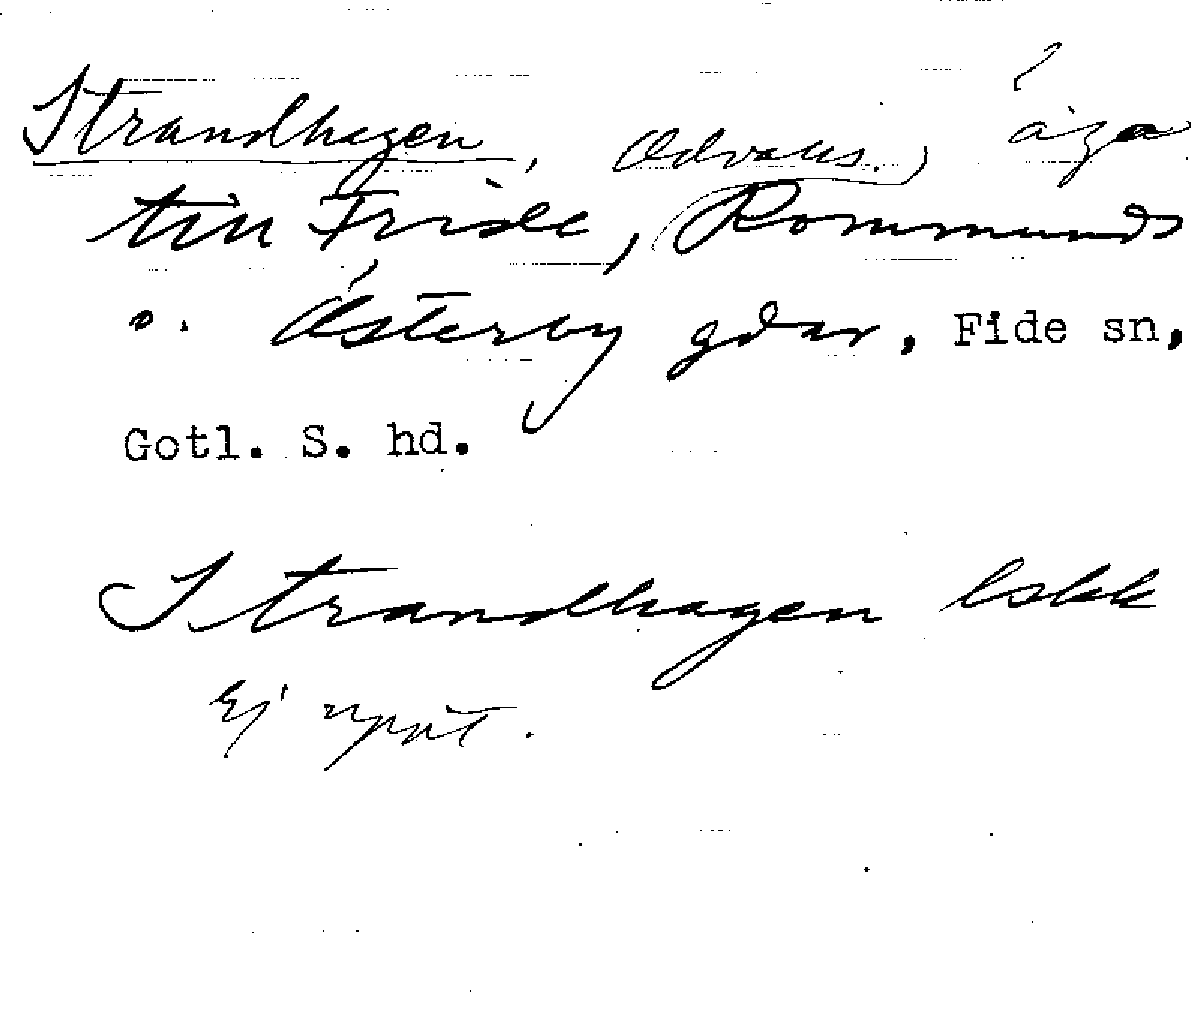 Strandhagen, Odvalls, äga
till Fride, Rommunds
o. Österby gdar, Fide sn,
Gotl. S. hd.
Strandhagen Lskk
Ej uppt.